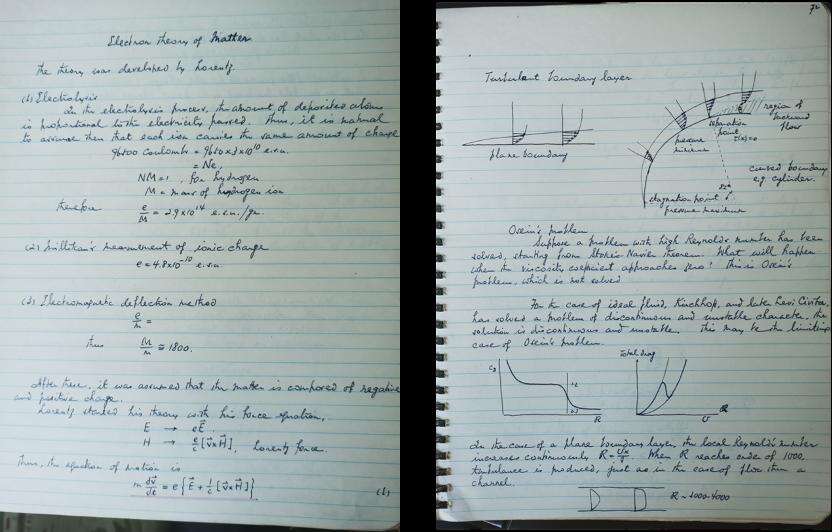 Electron theory of Matter
The theory was developed by Lorentz.
(1) Electrolysis
In the electrolysis process, the amount of deposited atoms
is proportional to the electricity passed. Thus, it is natural
to assume then that each ion carries the same amount of charge
96500 Coulomb = 9650 x 3 x 10^10 e.s.u.
= Ne,
NM = 1, for hydrogen
M = mass of hydrogen ion
therefore e/M = 2.9 x 10^14 e.s.u./gr.
(2) Millikan's measurement of ionic charge
e = 4.8 x 10^-10 e.s.u.
(3) Electromagnetic deflection method
e/m =
thus M/m ≅ 1800.
After these, it was assumed that the matter is composed of negative
and positive charge.
Lorentz started his theory with his force equation,
E → eE.
H → e/c [v x H], Lorentz force.
Thus, the equation of motion is
m dv/dt = e { E + 1/c [v x H] }
(1)
72
Turbulent boundary layer
plane boundary
separation point
region of backward flow
pressure minimum
curved boundary
e.g. cylinder.
stagnation point
pressure maximum
Oseen's problem
Suppose a problem with high Reynolds number has been
solved, starting from Stokes Navier theorem. What will happen
when the viscosity coefficient approaches zero? This is Oseen's
problem, which is not solved
For the case of ideal fluid, Kirchhoff, and late Levi Civita,
has solved a problem of discontinuous and unstable character. The
solution is discontinuous and unstable. This may be the limiting
case of Oseen's problem.
Total drag
R
U
In the case of a plane boundary layer, the local Reynolds number
increases continuously R = Ux/ν. When R reaches order of 1000,
turbulence is produced, just as in the case of flow thru a
channel.
R ~ 1000-4000